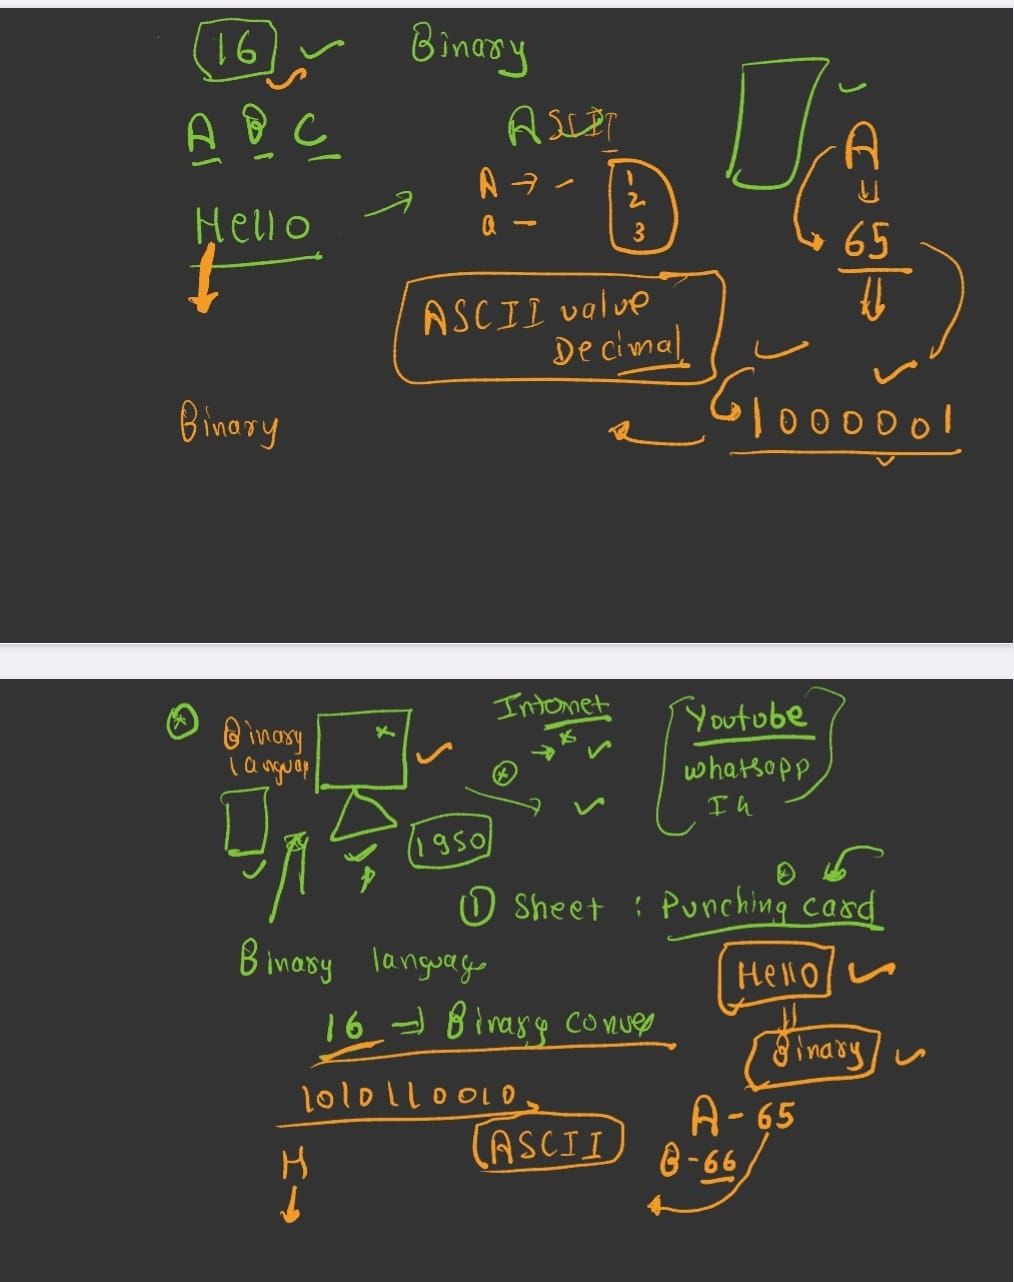 16 Binary
A B C
ASCII
A
A → -
a -
1
2
3
Hello
65
ASCII value
Decimal
Binary
1000001
Internet
Youtube
whatsapp
Binary
languag
1950
① Sheet : Punching card
Binary languag
Hello
16 ⇒ Binary conver
Binary
1010110010
A - 65
ASCII
B - 66
H